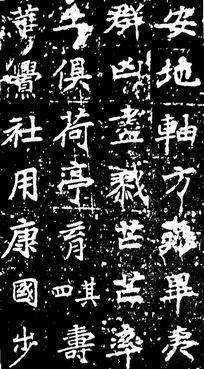 安地軸方畢夷
群凶盡戮芒芒率
土俱荷亭育其四壽
華釁社用康國步